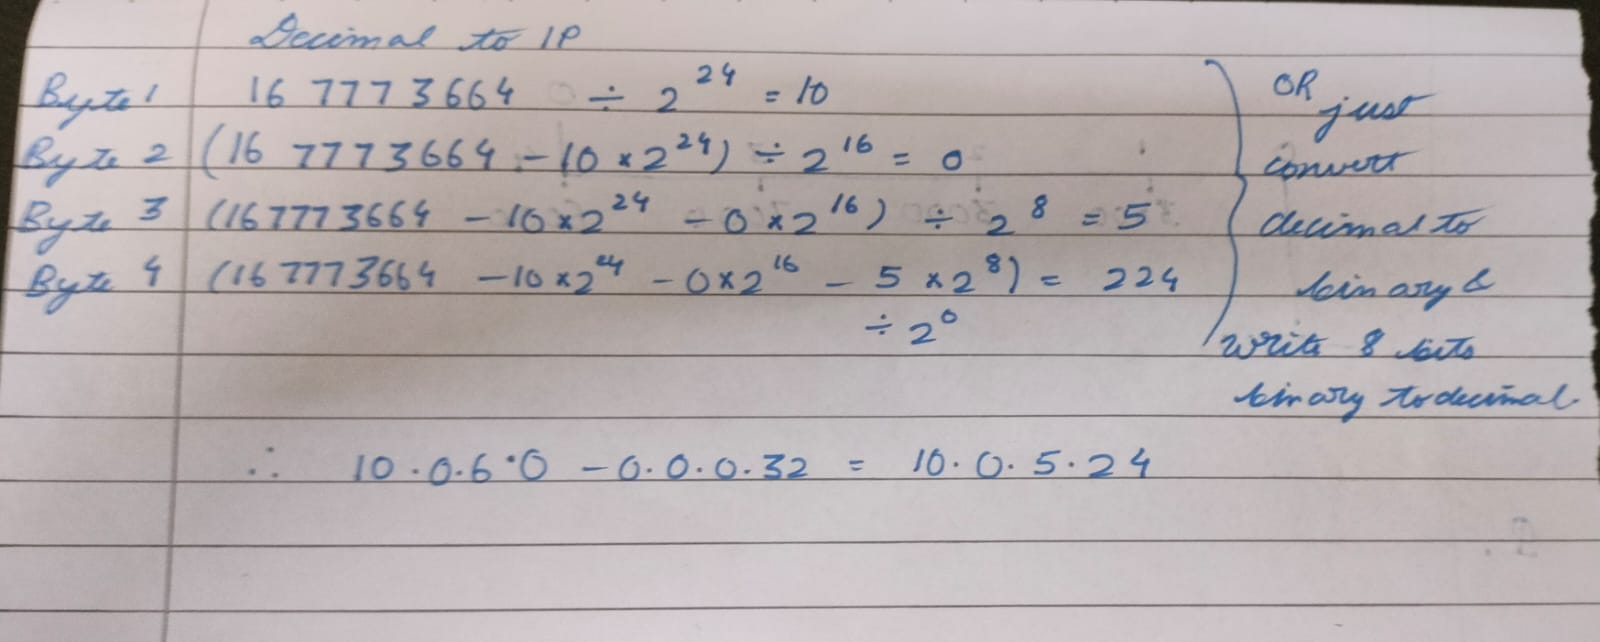 Decimal to IP
Byte 1 16 7773664 ÷ 2^24 = 10
Byte 2 (16 7773664 - 10 × 2^24) ÷ 2^16 = 0
Byte 3 (167773664 - 10 × 2^24 - 0 × 2^16) ÷ 2^8 = 5
Byte 4 (167773664 - 10 × 2^24 - 0 × 2^16 - 5 × 2^8) = 224
÷ 2^0
OR
just
convert
decimal to
binary &
write 8 bits
binary to decimal.
∴ 10.0.6.0 - 0.0.0.32 = 10.0.5.24